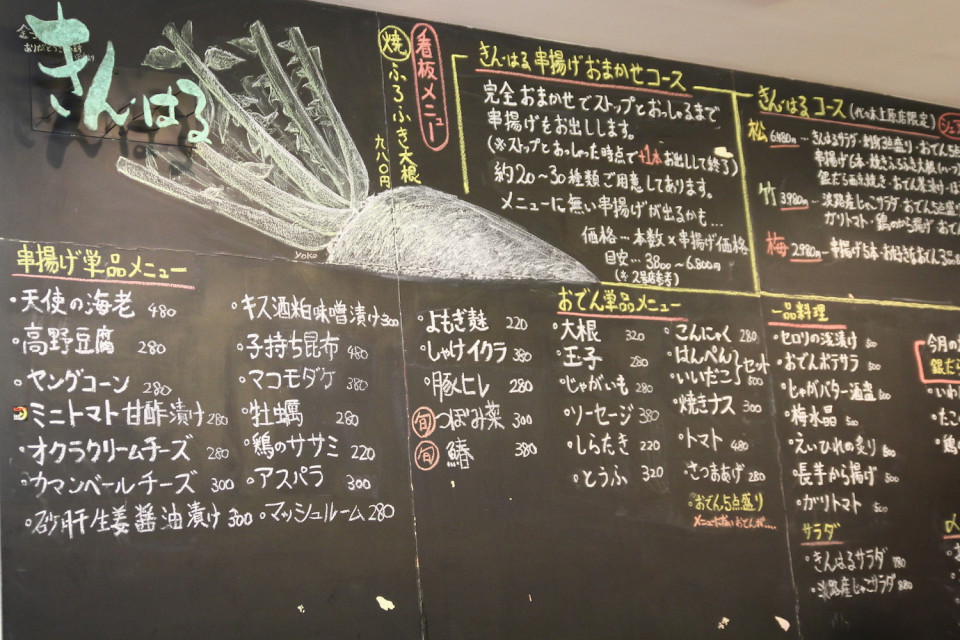 きんはる
看板メニュー
焼ふろふき大根
九八〇円
yoko
きんはる串揚げおまかせコース
完全おまかせでストップとおっしゃるまで
串揚げをお出しします。
(※ストップとおっしった時点で+1本お出しして終了)
約20〜30種類ご用意してあります。
メニューに無い串揚げが出るかも…
価格…本数×串揚げ価格
目安…3,800〜6,800円
きんはるコース(代々木上原店限定)
松 6480円
竹 3980円
ガリトマト・鶏のから揚げ
梅 2980円 串揚げ5本・お好きなおでん3品
串揚げ単品メニュー
・天使の海老 480
・高野豆腐 280
・ヤングコーン 280
ミニトマト甘酢漬け 280
・オクラクリームチーズ 280
・カマンベールチーズ 300
・砂肝生姜醤油漬け 300
・キス酒粕味噌漬け 300
・子持ち昆布 480
・マコモダケ 380
・牡蠣 280
・鶏のササミ 220
・アスパラ 300
・マッシュルーム 280
・よもぎ麩 220
・しゃけイクラ 380
・豚ヒレ 280
旬 つぼみ菜 300
旬 鰆 380
おでん単品メニュー
・大根 320
・玉子 280
・じゃがいも 280
・ソーセージ 380
・しらたき 220
・とうふ 320
・こんにゃく 280
・はんぺん
・いいだこ
セット 500
・焼きナス 300
・トマト 480
・さつまあげ 280
・おでん5点盛り
一品料理
・セロリの浅漬け 500
・おでんポテサラ 500
・じゃがバター酒盗 500
・梅水晶 500
・えいひれの炙り 500
・長芋から揚げ 500
・ガリトマト 500
サラダ
・きんはるサラダ
・淡路産じゃこサラダ 880
今月の
銀だら